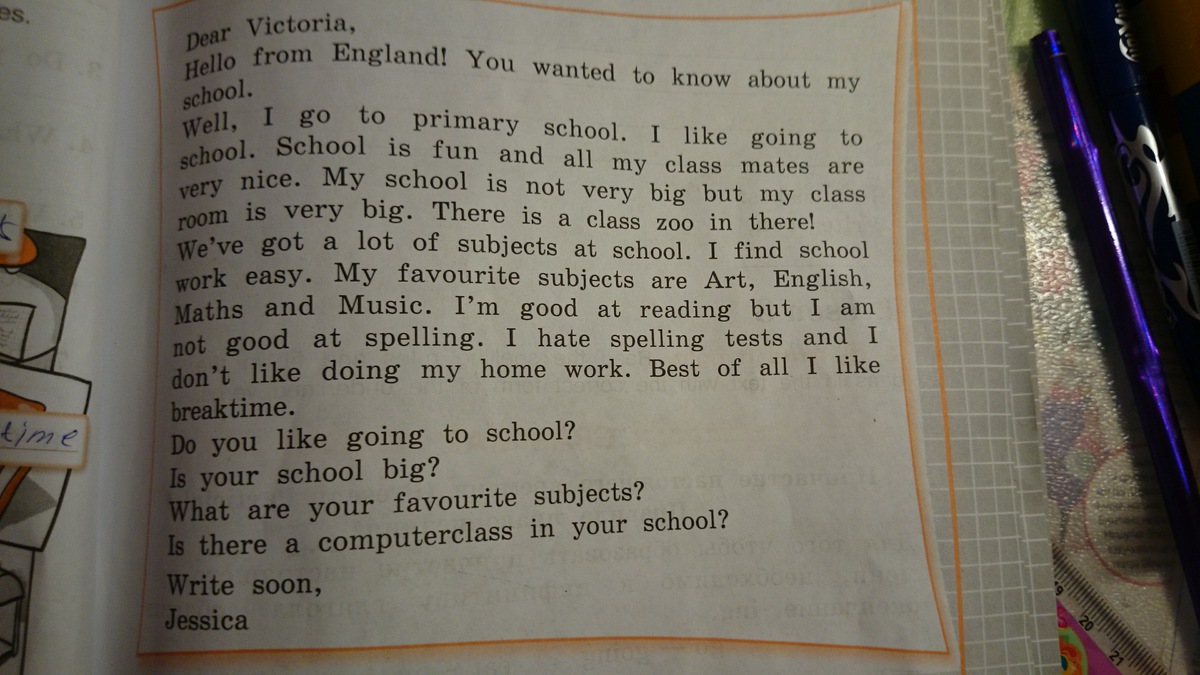 es.
Dear Victoria,
Hello from England! You wanted to know about my
school.
Well, I go to primary school. I like going to
school. School is fun and all my class mates are
very nice. My school is not very big but my class
room is very big. There is a class zoo in there!
We've got a lot of subjects at school. I find school
work easy. My favourite subjects are Art, English,
Maths and Music. I'm good at reading but I am
not good at spelling. I hate spelling tests and I
don't like doing my home work. Best of all I like
breaktime.
Do you like going to school?
Is your school big?
What are your favourite subjects?
Is there a computerclass in your school?
Write soon,
Jessica
time
19
20
21